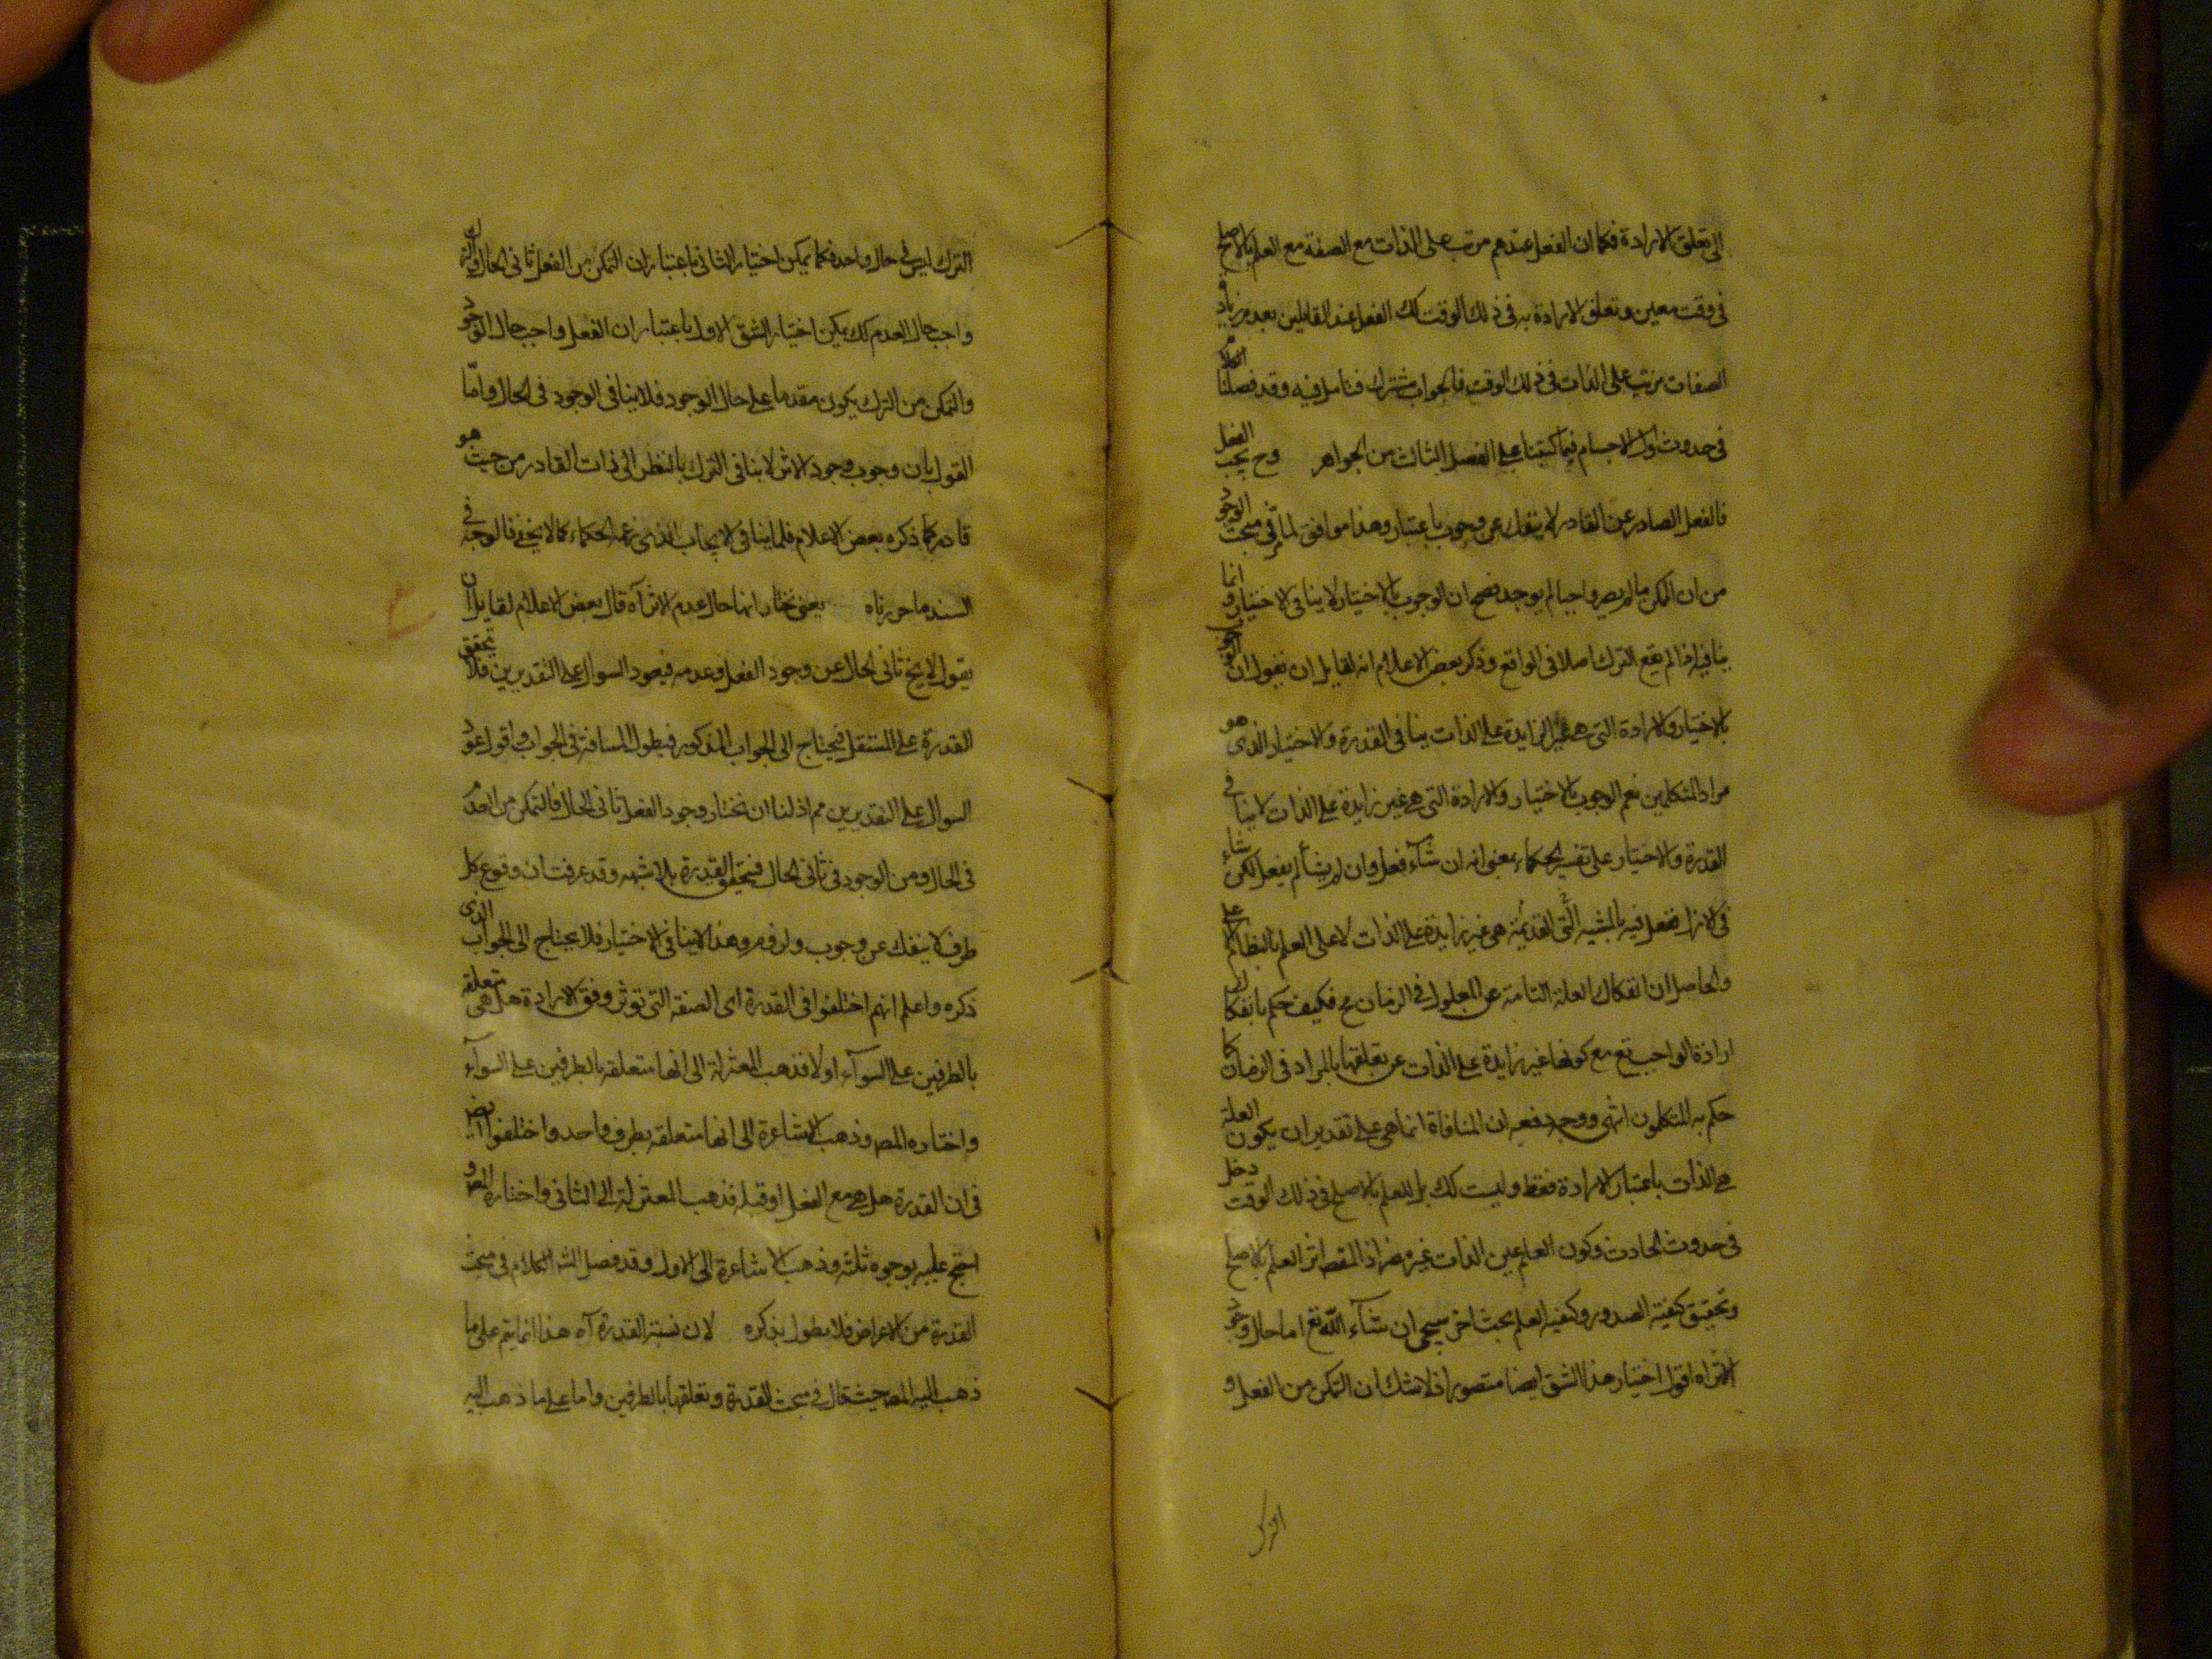 الى تعلق الارادة فكما ان الفعل عندهم مرتب على الذات مع الصفة مع العلم بالاصلح
فى وقت معين وتعلق الارادة به فى ذلك الوقت كك الفعل عند القايلين بعدم زيادة
الصفات مرتب على الذات فى ذلك الوقت فالجواب مشترك فتامل فيه وقد فصلنا الكلام
فى حدوث الاجسام فيما كتبنا على الفصل الثالث من الجواهر وح يجب الفعل
فالفعل الصادر عن القادر لا ينفك عن وجوب باعتبار وهذا موافق لما فى مبحث الوجود
من ان الممكن ما لم يصر واجبا لم يوجد فصح ان الوجوب بالاختيار لا ينافى الاختيار وانما
ينافيه اذا لم يقع الترك اصلا فى الواقع وذكر بعض الاعلام انه لقايل ان يقول ان الوجوب
بالاختيار والارادة التى هى غير الزايدة على الذات ينافى القدرة والاختيار الذى هو
مراد المتكلمين نعم الوجوب بالاختيار والارادة التى هى غير زايدة على الذات لا ينافى
القدرة والاختيار على تفسير الحكماء بمعنى انه ان شاء فعل وان لم يشألم يفعل لكن شاء
فى الازل ففعل فيه بالمشية التى القديمة هى غير زايدة على الذات لا على العلم بالنظام
والحاصل ان انفكاك العلة التامة عن المعلول فى الزمان مح فكيف حكم بانفكاك
ارادة الواجب تع مع كونها غير زايدة على الذات عن تعلقها بالمراد فى الزمان كما
حكم به المتكلمون انتهى ووجه دفعه ان المنافاة انما هى على تقدير ان يكون العلة
هى الذات باعتبار الارادة فقط وليست كك بل للعلم بالاصلح فى ذلك الوقت دخل
فى حدوث الحادث وكون العلم عين الذات غير مضر اذ المقص اثر العلم بالاصلح
وتحقيق كيفية الصدور وكيفية العلم بحث اخر سيجى ان شآء الله تع اما حال وجود
الاثر اه اقول اختيار هذا الشق ايضا متصور اذ لا شك ان التمكن من الفعل و
الترك
الترك ليس فى حال واحد فكما يمكن اختيار الثانى باعتبار ان التمكن من الفعل ثانى الحال والترك
واجب حال العدم كك يمكن اختيار الشق الاول باعتبار ان الفعل واجب حال الوجود
والتمكن من الترك يكون مقدما على حال الوجود فلا ينافى الوجود فى الحال واما
القول بان وجوب وجود الاثر لا ينافى الترك بالنظر الى ذات القادر من حيث هو
قادر كما ذكره بعض الاعلام فلما ينافى الايجاب الذى زعمه الحكماء كما لا يخفى فالوجه فى
السند ما حررناه يعنى نختار انها حال عدم الاثر آه قال بعض الاعلام لقايل ان
يقول لا يخ ثانى الحال عن وجود الفعل وعدمه فيعود السوال على التقديرين فلا تحقق
القدرة على المستقبل فيحتاج الى الجواب المذكور فيطول المسافة فى الجواب واقول عود
السوال على التقديرين مم اذ لنا ان نختار وجود الفعل ثانى الحال فالتمكن من العدم
فى الحال ومن الوجود فى ثانى الحال فيتحقق القدرة بلا شبهه وقد عرفت ان وقوع كل
طرف لا ينفك عن وجوب ولزوم وهذا لا ينافى الاختيار فلا يحتاج الى الجواب الذى
ذكره واعلم انهم اختلفوا فى القدرة اى الصفة التى توثر وفق الارادة هل هى متعلقه
بالطرفين على السوآء او لا فذهب المعتزلة الى انها متعلقه بالطرفين على السوآء
واختاره المص وذهب الاشاعرة الى انها متعلقه بطرف واحد واختلفوا ايضا
فى ان القدرة هل هى مع الفعل او قبله فذهب المعتزلة الى الثانى واختاره المص و
احتج عليه بوجوه ثلثه وذهب الاشاعرة الى الاول وقد فصل الش الكلام فى مبحث
القدرة من الاعراض فلا يطول بذكره لان نسبة القدرة آه هذا انما يتم على ما
ذهب اليه المص حيث قال فى مبحث القدرة وتعلقها بالطرفين واما على ما ذهب اليه